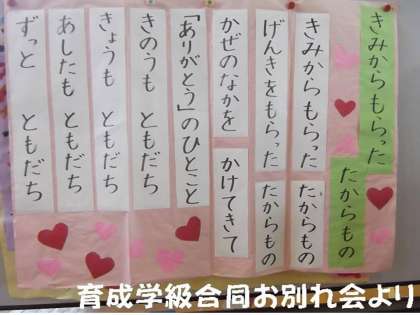 きみからもらった たからもの
きみからもらった たからもの
げんきをもらった たからもの
かぜのなかを かけてきて
「ありがとう」のひとこと
きのうも ともだち
きょうも ともだち
あしたも ともだち
ずっと ともだち
育成学級合同お別れ会より